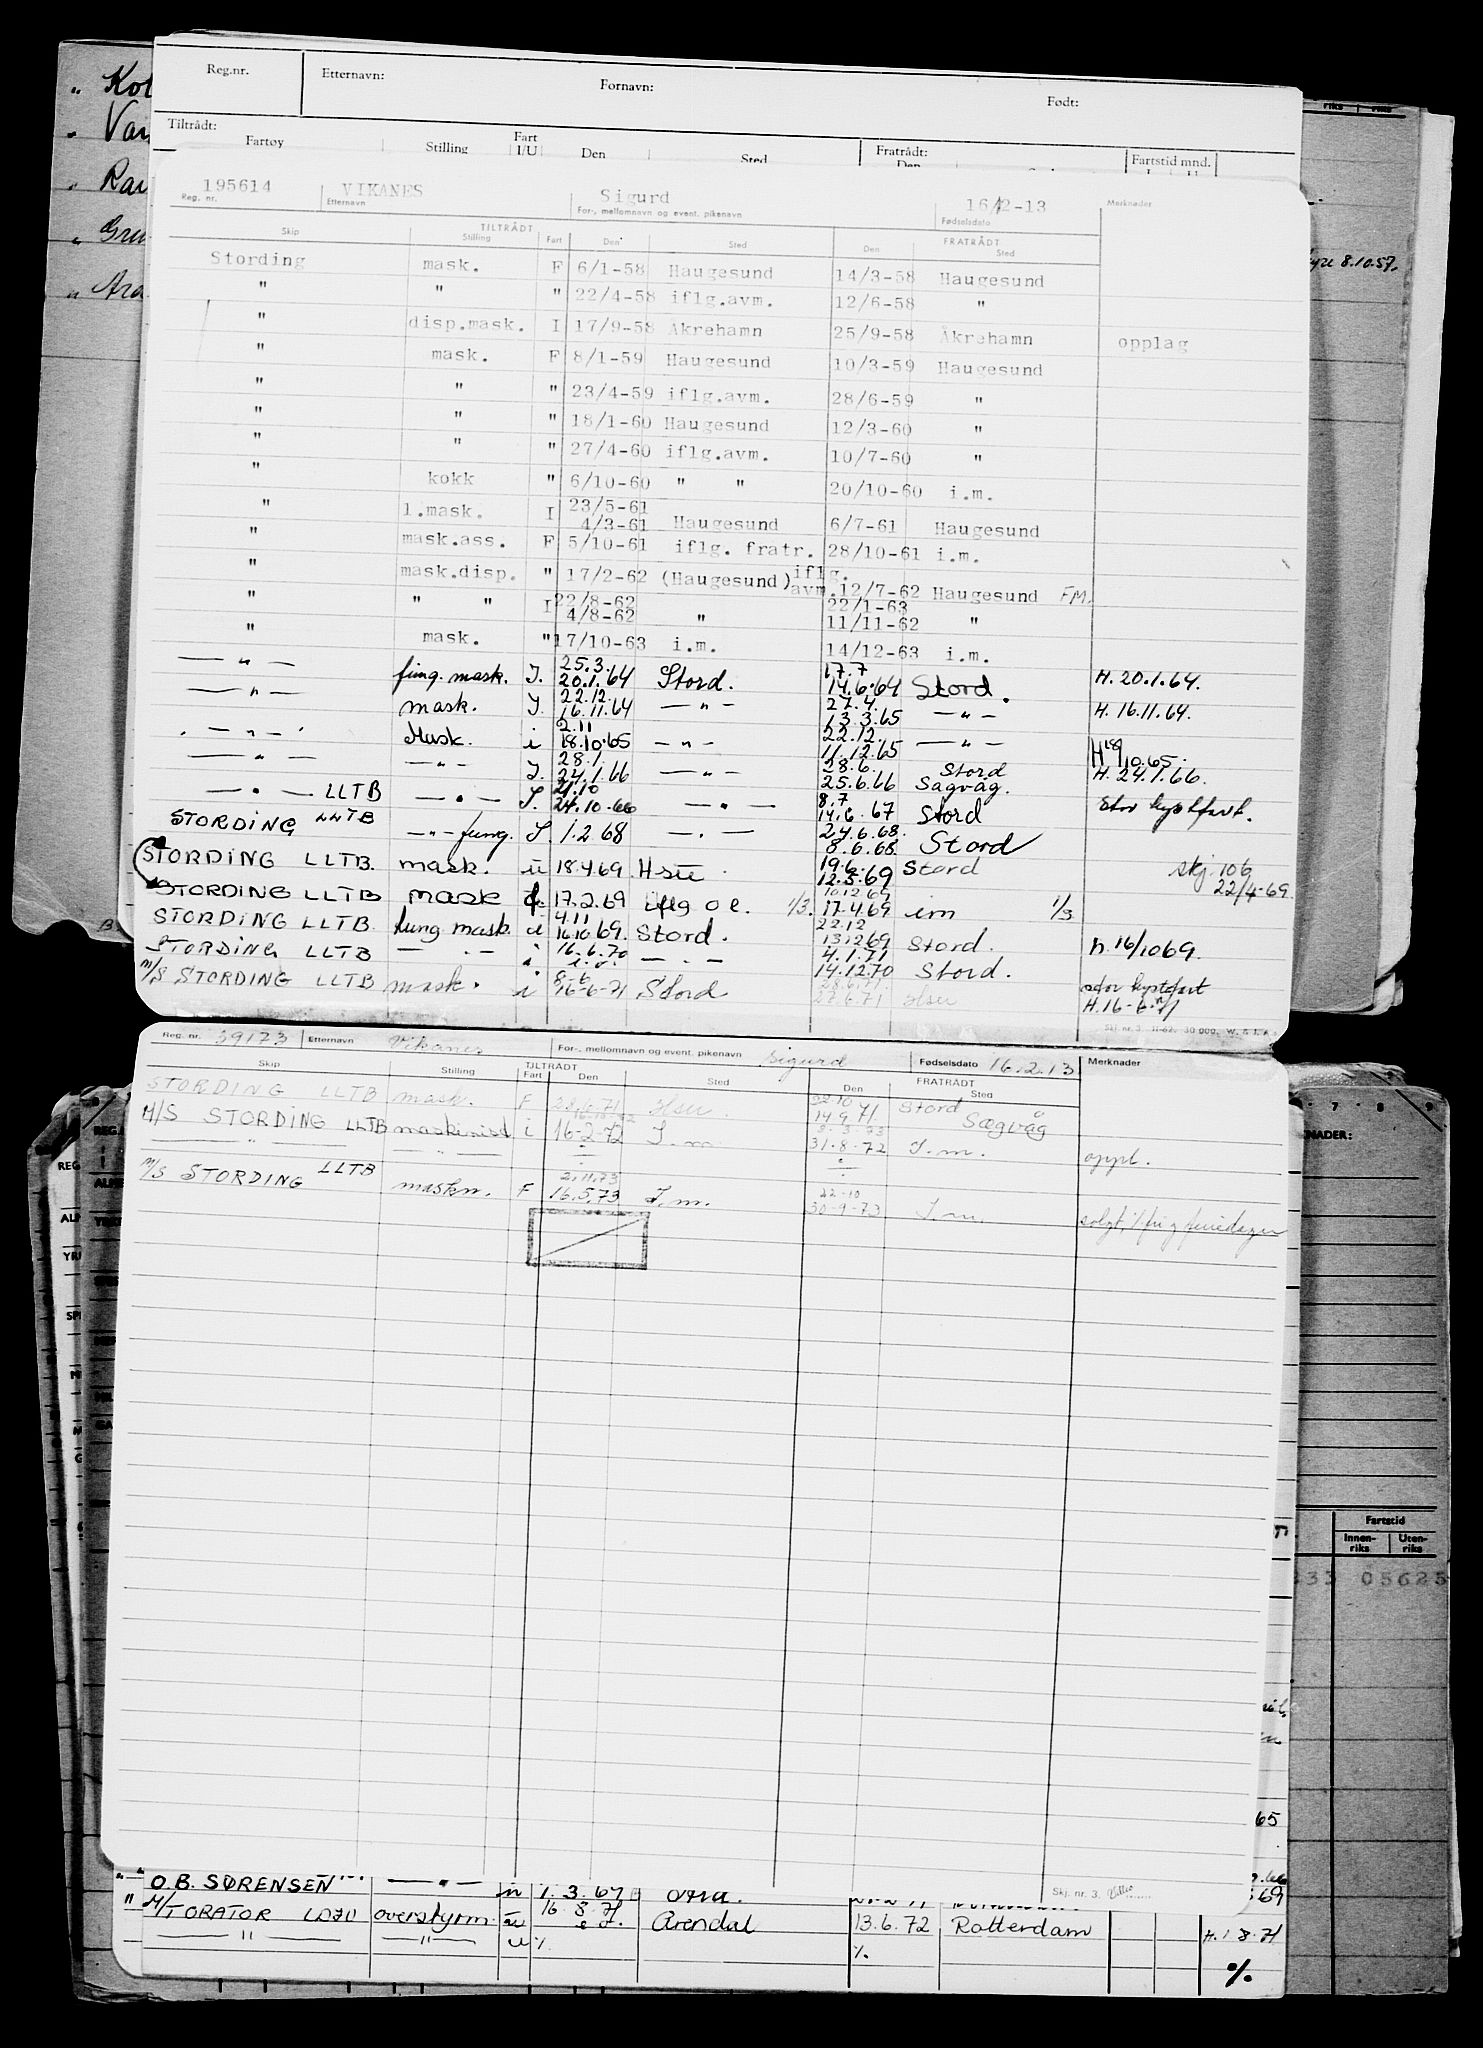 Reg.nr. Etternavn: Fornavn: Født:
Tiltrådt: Fratrådt: Fartstid mnd.
Fartøy Stilling Fart I/U Den Sted Den
195614 VIKANES Sigurd 16/2-13
Reg. nr. Etternavn For-, mellomnavn og event. pikenavn Fødselsdato Merknader
TILTRÅDT FRATRÅDT
Skip Stilling Fart Den Sted Den Sted
Stording mask. F 6/1-58 Haugesund 14/3-58 Haugesund
" " " 22/4-58 iflg.avm. 12/6-58 "
" disp.mask. I 17/9-58 Åkrehamn 25/9-58 Åkrehamn opplag
" mask. F 8/1-59 Haugesund 10/3-59 Haugesund
" " " 23/4-59 iflg.avm. 28/6-59 "
" " " 18/1-60 Haugesund 12/3-60 "
" " " 27/4-60 iflg.avm. 10/7-60 "
" kokk " 6/10-60 " " 20/10-60 i.m.
" 1.mask. I 23/5-61 4/3-61 Haugesund 6/7-61 Haugesund
" mask.ass. F 5/10-61 iflg. fratr. 28/10-61 i.m.
" mask.disp. " 17/2-62 (Haugesund) iflg. avm. 12/7-62 Haugesund FM.
" " " I 22/8-62 4/8-62 " 22/1-63 11/11-62 "
" mask. " 17/10-63 i.m. 14/12-63 i.m.
— " — fung. mask. I. 25.3. 20.1.64 Stord. 17.7 14.6.64 Stord. H. 20.1.64.
— " — mask. I. 22.12. 16.11.64 — " — 27.4. 13.3.65 — " — H. 16.11.64.
— " — Mask. i 2.11 18.10.65 — " — 22.12. 11.12.65 — " — H 18/10.65.
— " — — " — I. 28.1. 24.1.66 — " — 28.6. 25.6.66 Stord Sagvåg. H. 24.1.66.
— " — LLTB — " — I. 21.10 24.10.66 — " — 8.7 14.6.67 Stord Stor kystfart.
STORDING LLTB — " — fung. I. 1.2 68 — " — 24.6.68. 8.6.68 Stord
STORDING LLTB. mask. u 18.4.69 Hsu. 19.6. 12.5.69 Stord skj. 106 22/4-69.
STORDING LLTB mask f. 17.2.69 iflg o e. 1/3. 10.12.69 17.4.69 im 1/3
STORDING LLTB. fung mask. u 4.11 16.10 69. Stord. 22.12 13.12.69 Stord. h. 16/10 69.
STORDING LLTB — " — i 16.6.70 — " — 4.1.71 14.12.70 Stord.
M/S STORDING LLTB mask. i 8-6 16-6-71 Stord 28.6.71. 27.6.71 Hsu stor kystfart H. 16-6-71
Skj. nr. 3. 11-62. 30 000.
Reg. nr. 39173 Etternavn Vikanes For-, mellomnavn og event. pikenavn Sigurd Fødselsdato 16.2.13 Merknader
TILTRÅDT FRATRÅDT
Skip Stilling Fart Den Sted Den Sted
STORDING LLTB mask. F 28.6.71 Hsu. 22-10 14.9.71. Stord
M/S STORDING LLTB maskinist i 16-2-72 I. m. Sægvåg
— " — — " — 31.8.72 I. m. oppl.
M/S STORDING LLTB maskn. F 2.11.73 16.5.73 I. m. 22-10 30-9-73 I. m.
Skj. nr. 3.
O.B. SØRENSEN — " — 1.3.67
M/TORATOR overstyrm. u 16.8.71 Arendal 13.6.72 Rotterdam H. 1 8.71
— " — — " — u %. %. %.
Fartstid
Innen-riks Uten-riks
05625
8.10.57.